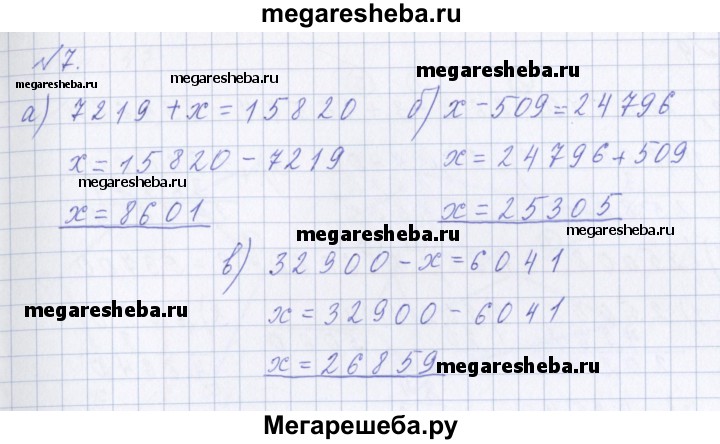 megaresheba.ru
№7.
megaresheba.ru megaresheba.ru megaresheba.ru
а) 7219 + x = 15820 б) x - 509 = 24796
x = 15820 - 7219 x = 24796 + 509
megaresheba.ru
x = 8601 x = 25305
megaresheba.ru megaresheba.ru
в) 32900 - x = 6041
megaresheba.ru x = 32900 - 6041
x = 26859 megaresheba.ru
Мегарешеба.ру